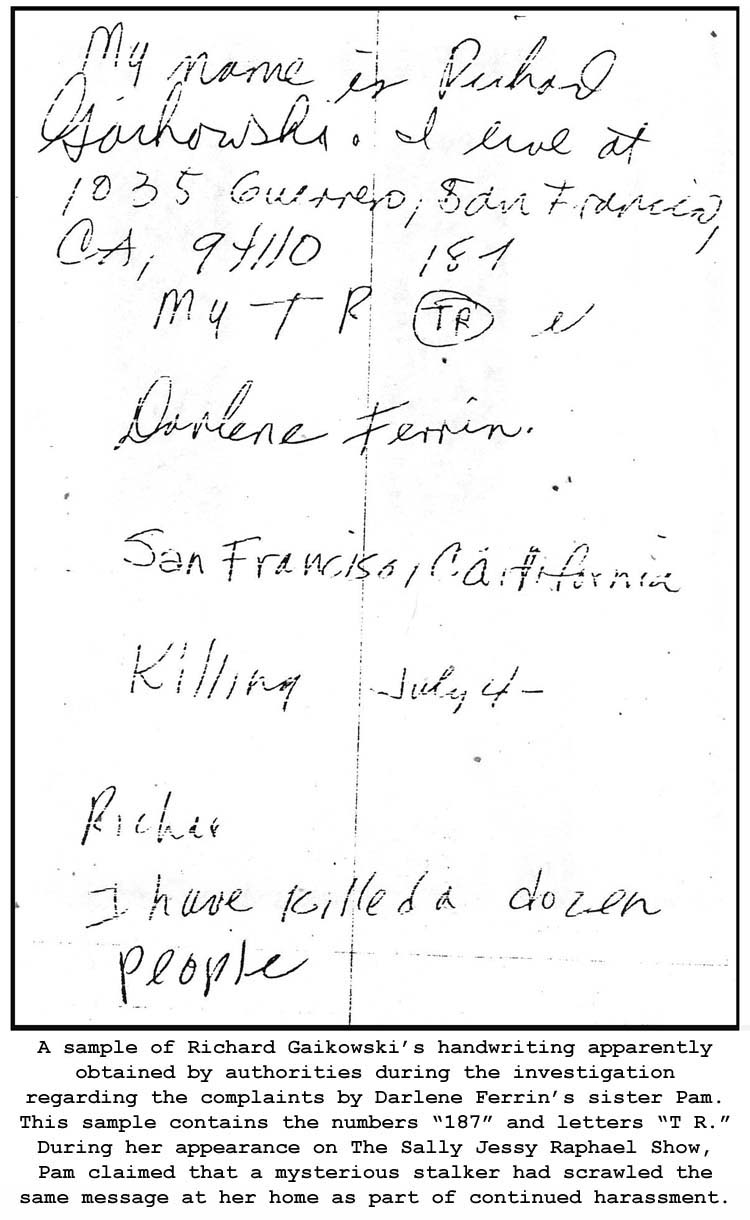 My name is Richard
Gaikowski. I live at
1035 Guerrero, San Francisco,
CA, 94110 187
My T R TR
Darlene Ferrin.
San Francisso, California
Killing July 4-
Richar
I have killed a dozen
people
A sample of Richard Gaikowski’s handwriting apparently
obtained by authorities during the investigation
regarding the complaints by Darlene Ferrin’s sister Pam.
This sample contains the numbers “187” and letters “T R.”
During her appearance on The Sally Jessy Raphael Show,
Pam claimed that a mysterious stalker had scrawled the
same message at her home as part of continued harassment.